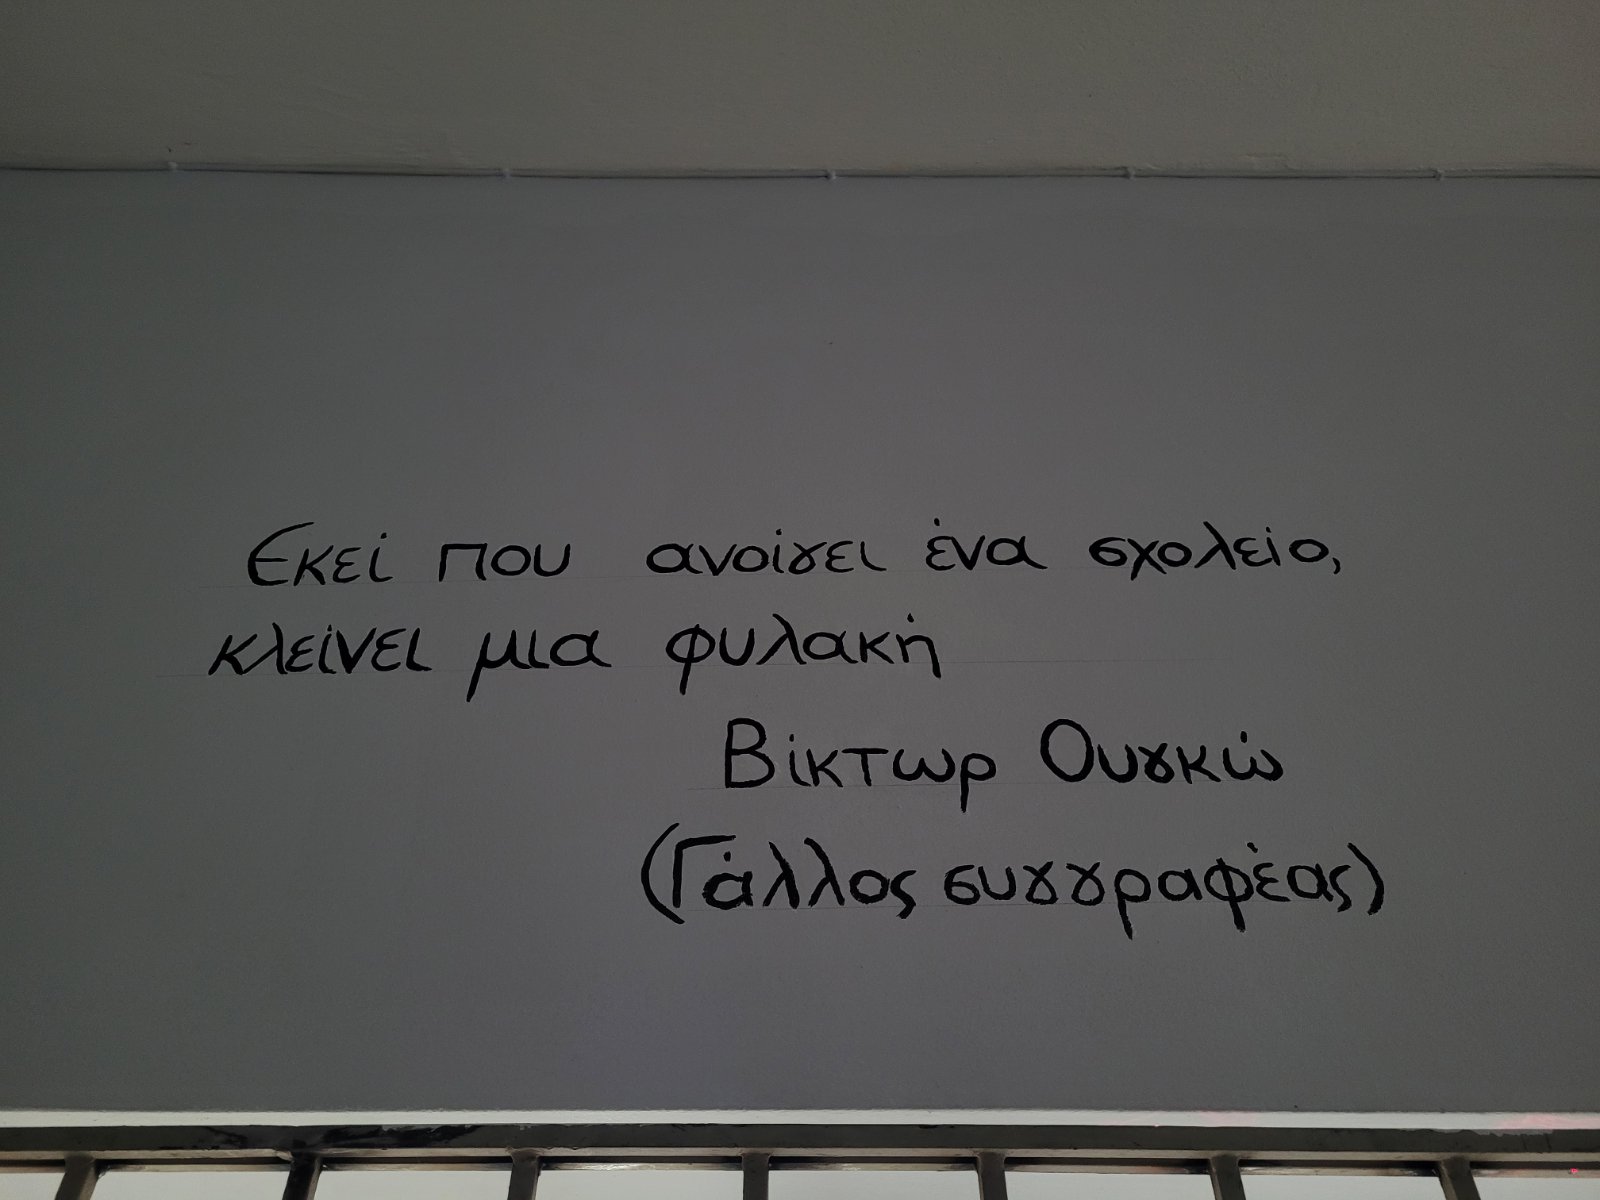 Εκεί που ανοίγει ένα σχολείο,
κλείνει μια φυλακή
Βίκτωρ Ουγκώ
(Γάλλος συγγραφέας)